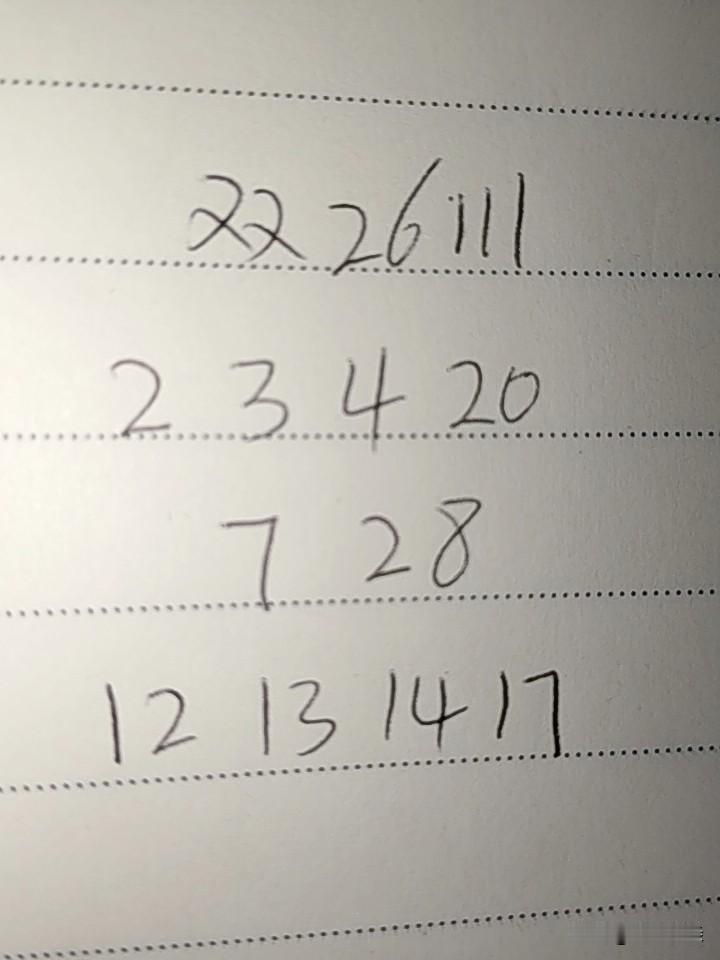 22 26 111
2 3 4 20
7 28
12 13 14 17